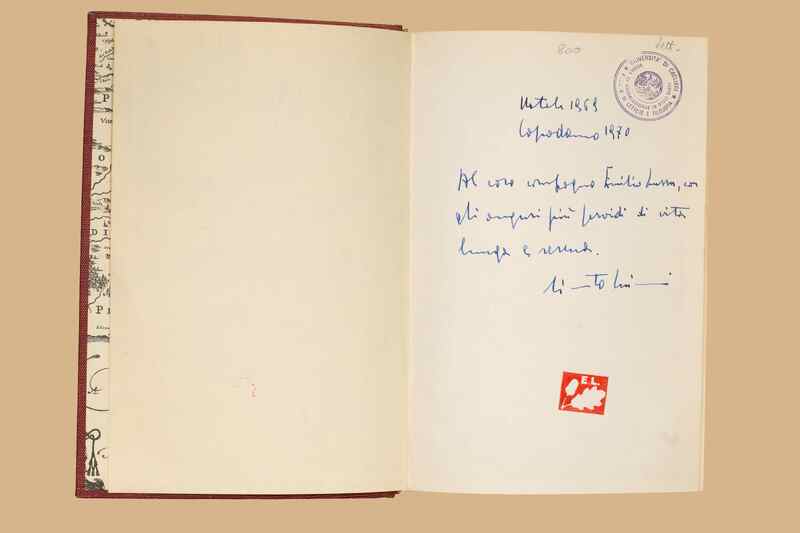 800
Natale 1969
Capodanno 1970
Al caro compagno Emilio Lussu, con
gli auguri più fervidi di vita
lunga e serena.
UNIVERSITA' DI CAGLIARI
LETTERE E FILOSOFIA
E.L.
P
O
D I
P